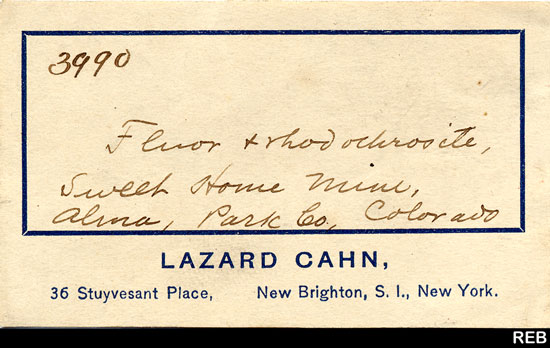 3990
Fluor & rhodochrosite,
Sweet Home Mine,
Alma, Park Co., Colorado
LAZARD CAHN,
36 Stuyvesant Place, New Brighton, S. I., New York.
REB